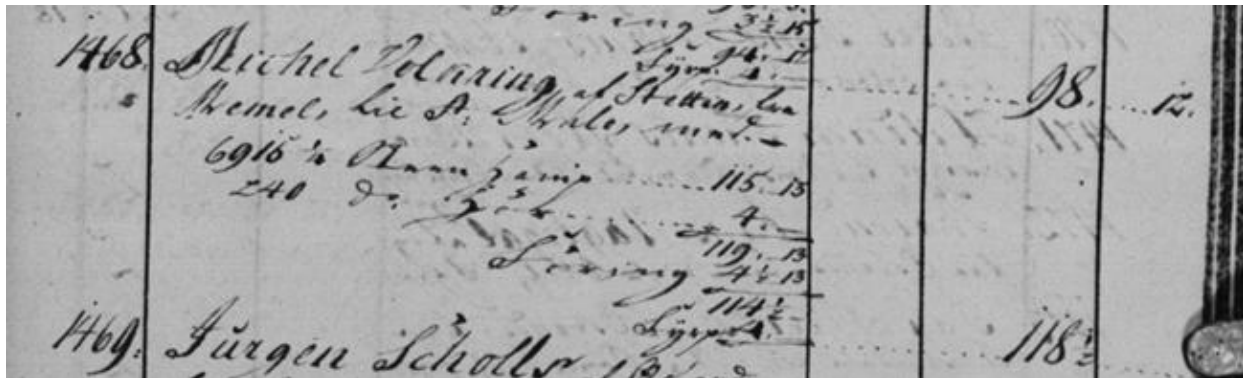 Föring 3 ½ 15
94. 12
1468. Michel Volaring af Stettin, fra Fyrp. 4. 98. 12.
Memel, til St: Malo, med.
6915 ½ Steen Hamp 115. 13
240 do. Hör 4. -
119. 13
Föring 4 ½ 13
114 ½
Fyrp. 4.
1469. Jürgen Scholls 118 ½